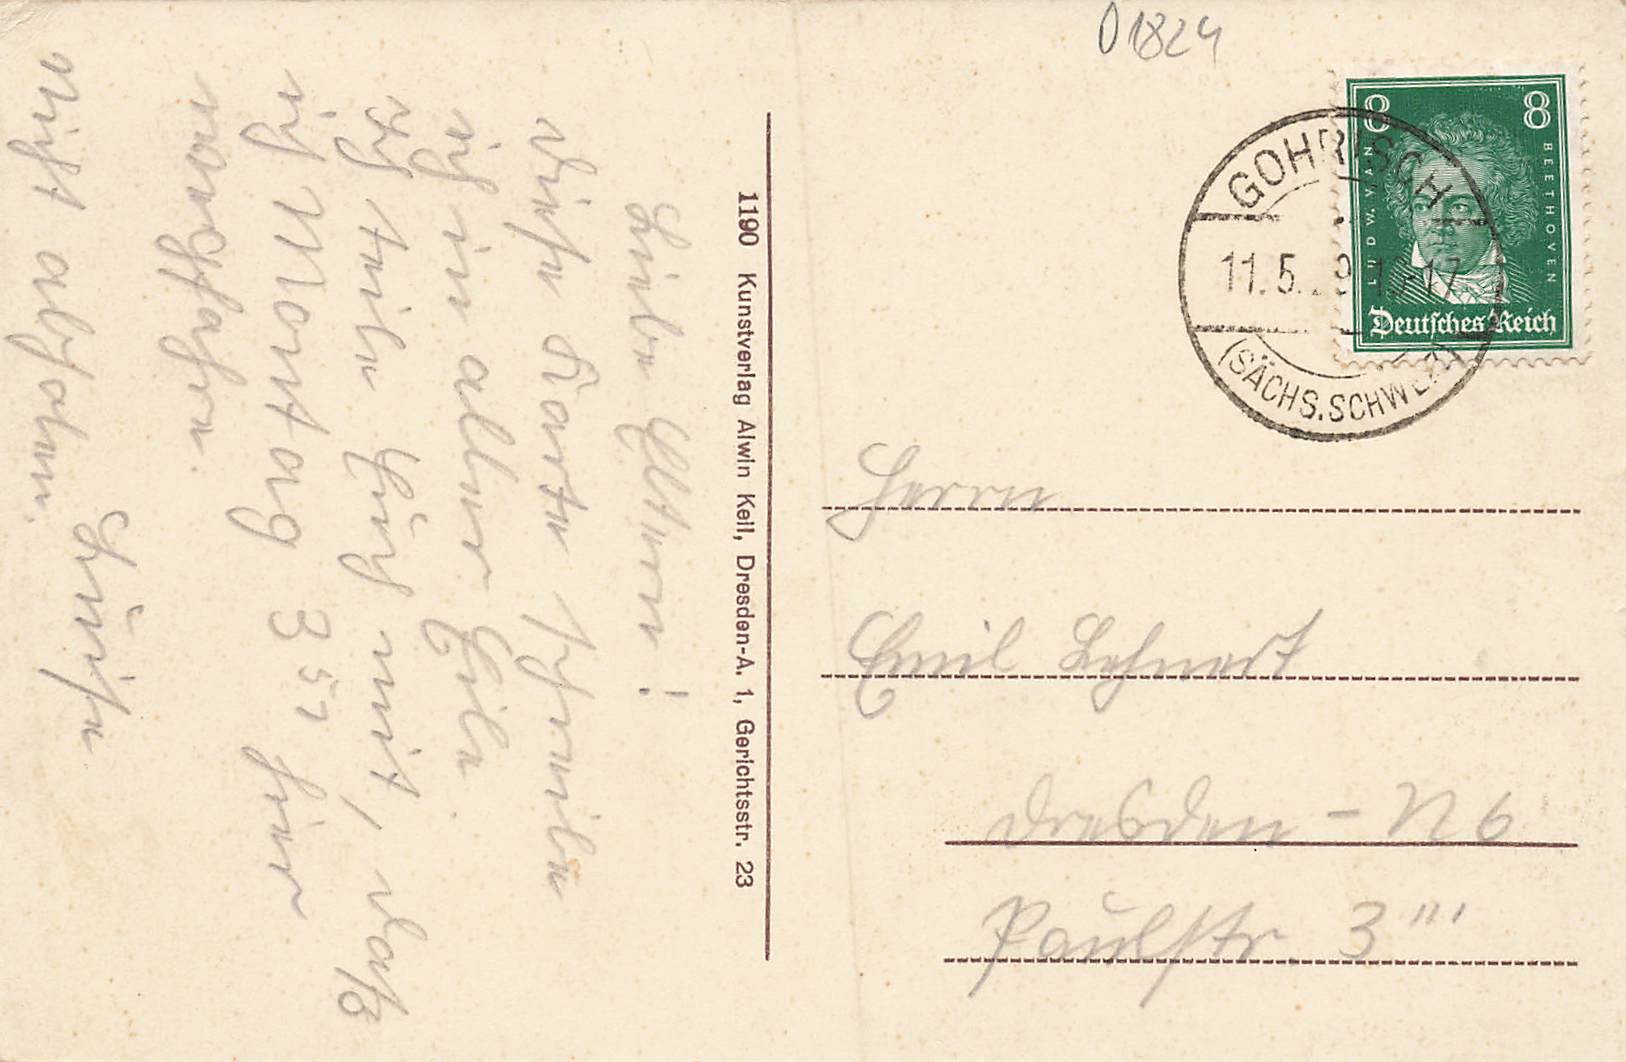 01824
8 8
LUDW. VAN
BEETHOVEN
Deutsches Reich
GOHRISCH
11.5. 17
(SÄCHS.SCHWEIZ)
Herrn
Emil Lehnert
Dresden - N 6
Paulstr. 3'''
1190 Kunstverlag Alwin Keil, Dresden-A. 1, Gerichtsstr. 23
Liebe Eltern!
Diese Karte schreibe
ich in aller Eile.
Ich teile Euch mit, daß
ich Montag 3 57 hier
wegfahre.
Luise
Nicht abholen.